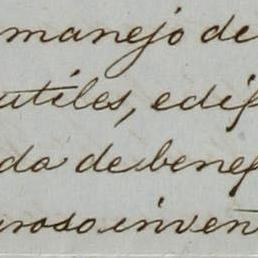 manejo de
utiles, edif
da de benef
uroso inven